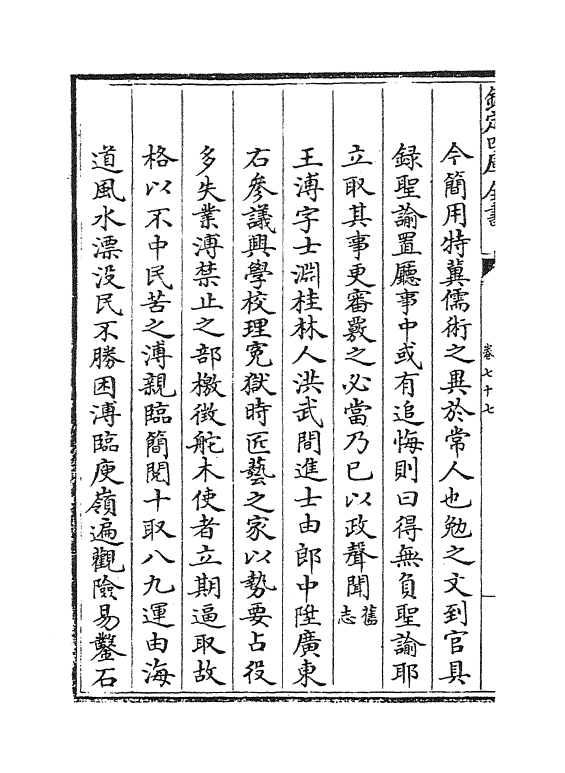 欽定四庫全書
卷七十七
今簡用特冀儒術之異於常人也勉之文到官具
録聖諭置廳事中或有追悔則曰得無負聖諭耶
立取其事更審覈之必當乃已以政聲聞舊志
王溥字士淵桂林人洪武間進士由郎中陞廣東
右參議興學校理寃獄時匠藝之家以勢要占役
多失業溥禁止之部檄徴舵木使者立期逼取故
格以不中民苦之溥親臨簡閱十取八九運由海
道風水漂没民不勝困溥臨庾嶺遍觀險易鑿石